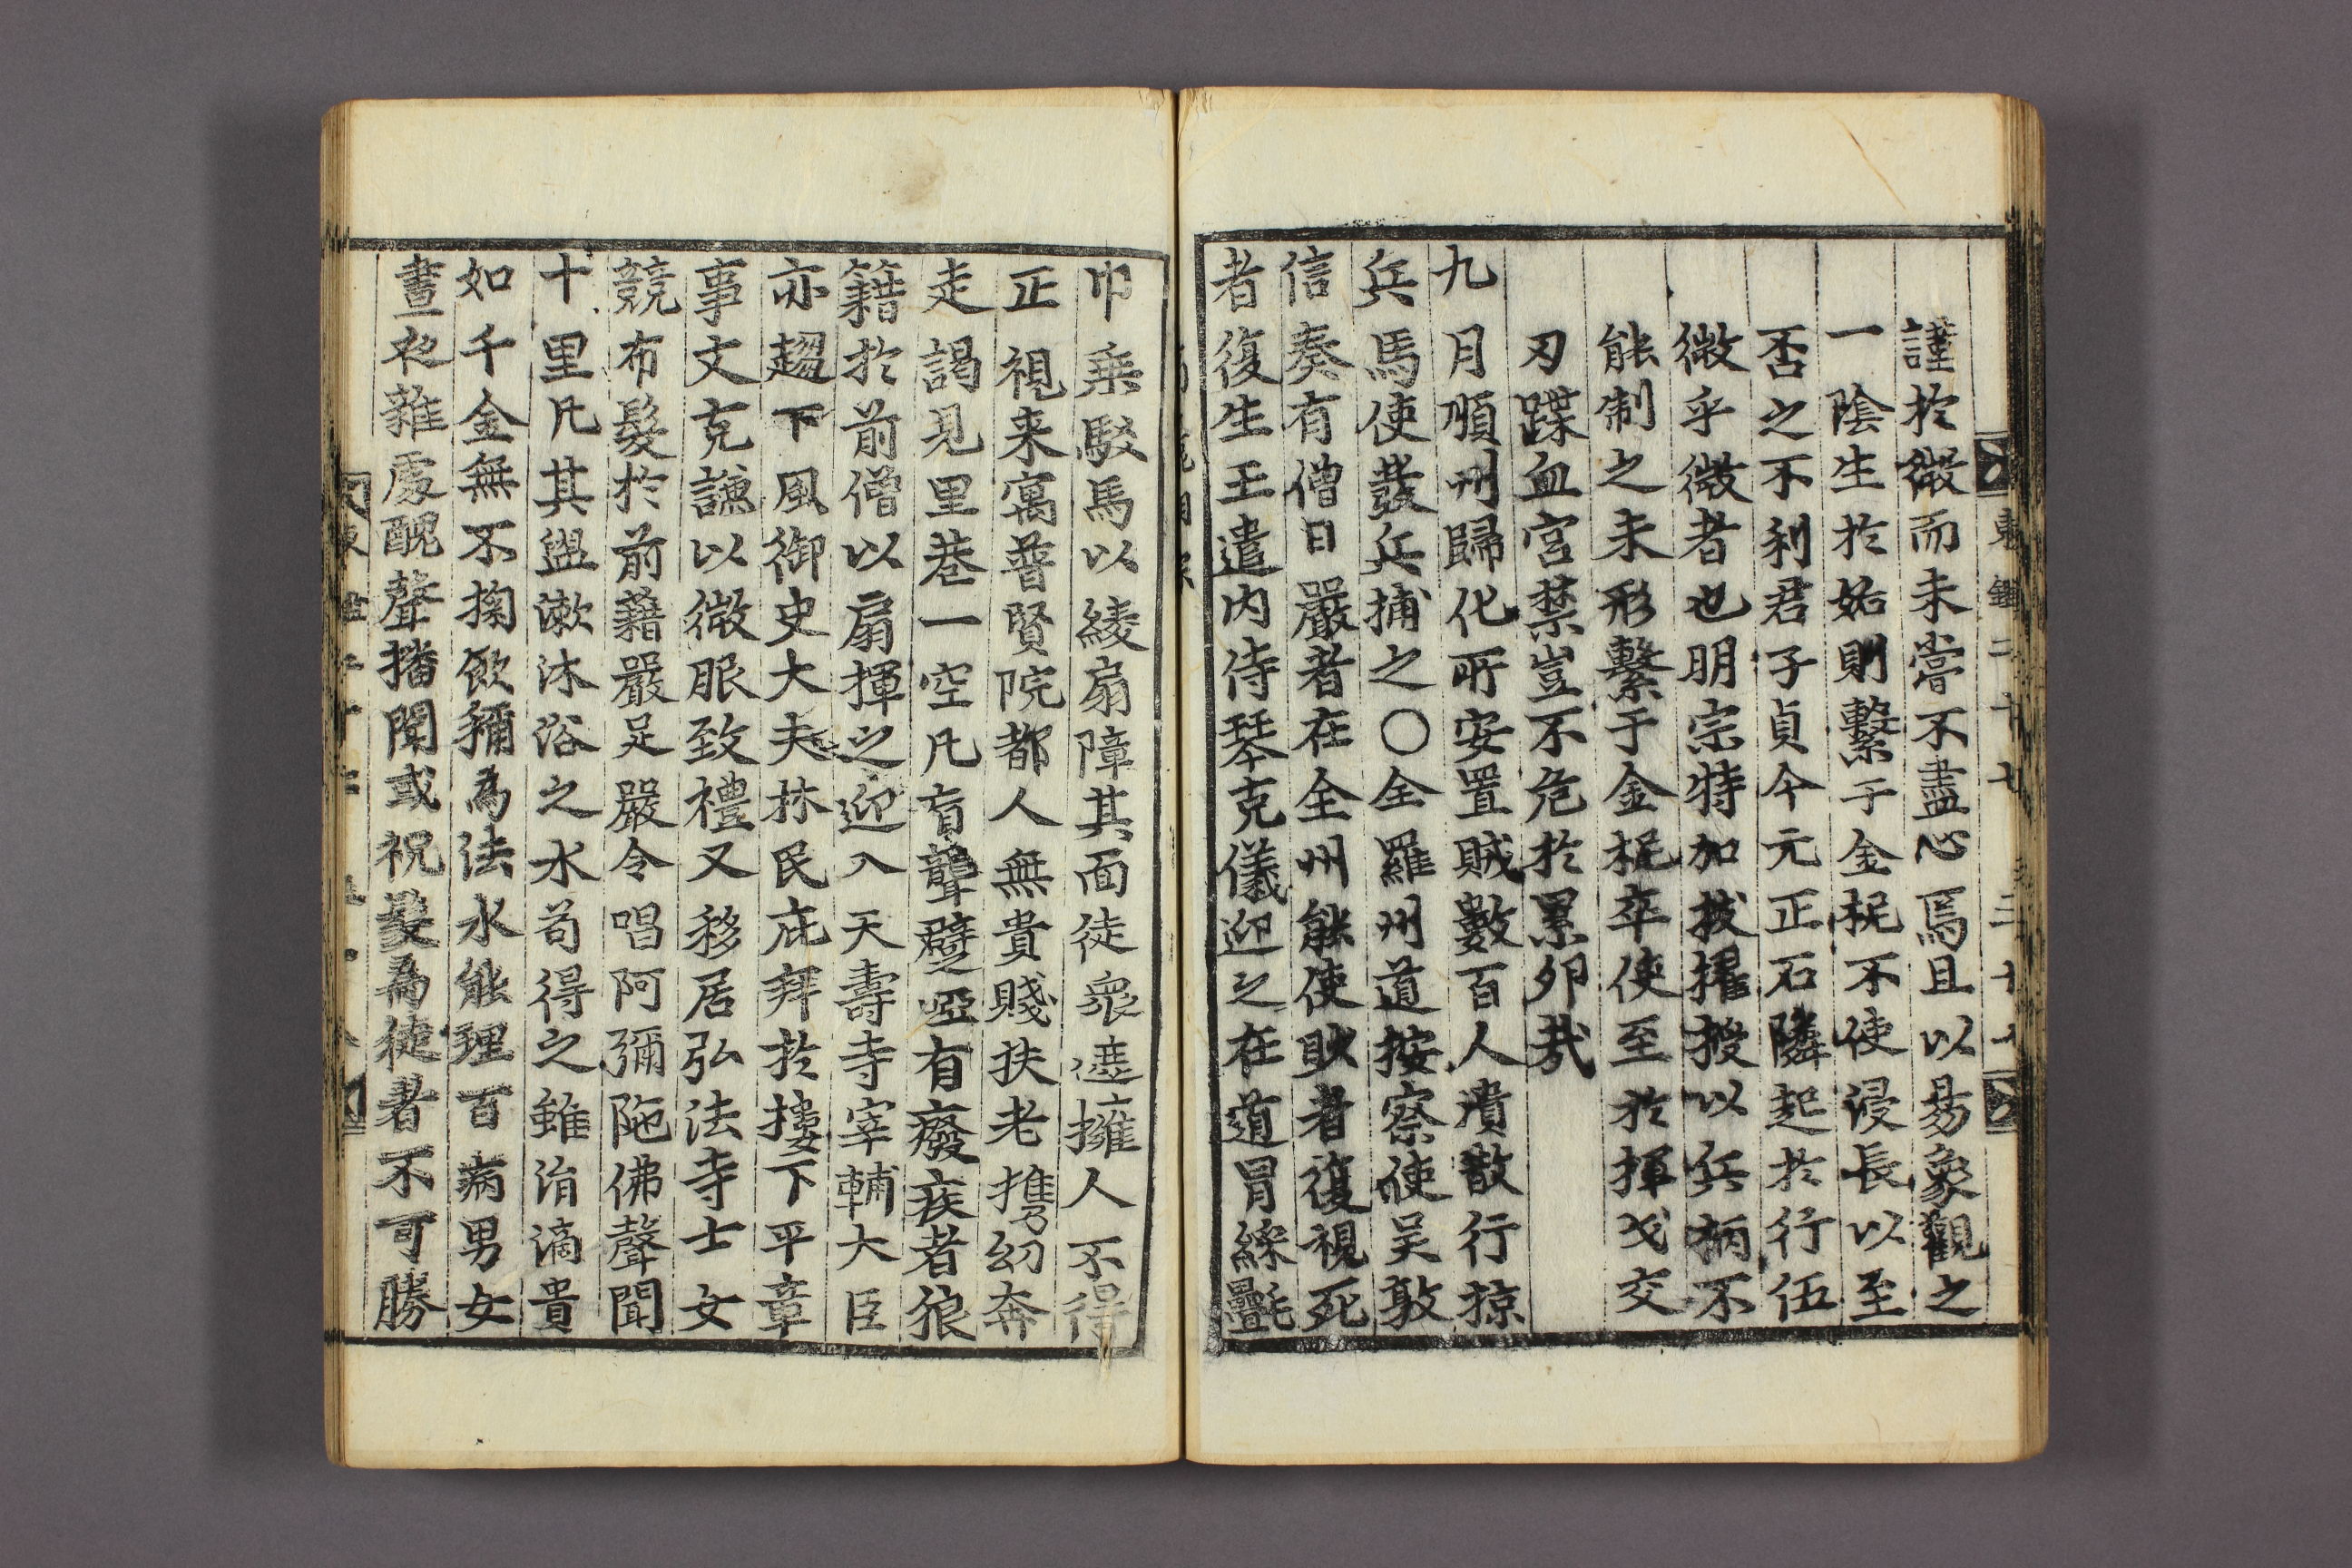 謹於微而未嘗不盡心焉且以易象觀之
一陰生於姤則繫于金柅不使浸長以至
否之不利君子貞今元正石隣起於行伍
微乎微者也明宗特加拔擢授以兵柄不
能制之未形繫于金柅卒使至於揮戈交
刃蹀血宮禁豈不危於累卵哉
九月順州歸化所安置賊數百人潰散行掠
兵馬使發兵捕之○全羅州道按察使吴敦
信奏有僧日嚴者在全州能使眇者復視死
者復生王遣内侍琴克儀迎之在道冒綵㲲
巾乗駁馬以綾扇障其面徒衆遮擁人不得
正視来寓普賢院都人無貴賤扶老携幼奔
走謁見里巷一空凡盲聾躄啞有癈疾者狼
籍於前僧以扇揮之迎入天壽寺宰輔大臣
亦趨下風御史大夫林民庇拜於摟下平章
事文克謙以微服致禮又移居弘法寺士女
競布髮於前藉嚴足嚴令唱阿彌陁佛聲聞
十里凡其盥漱沐浴之水苟得之雖涓滴貴
如千金無不掬飲稱為法水能理百病男女
晝夜雜處醜聲播聞或祝髮為徒者不可勝